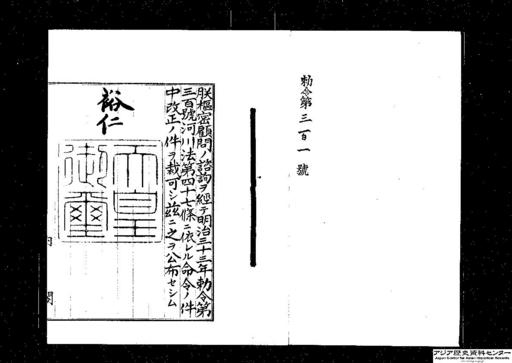 勅令第三百一號
朕樞密顧問ノ諮詢ヲ經テ明治三十三年勅令第
三百號河川法第四十七條ニ依レル命令ノ件
中改正ノ件ヲ裁可シ茲ニ之ヲ公布セシム
裕仁
天皇御璽
内閣
アジア歴史資料センター
Japan Center for Asian Historical Records